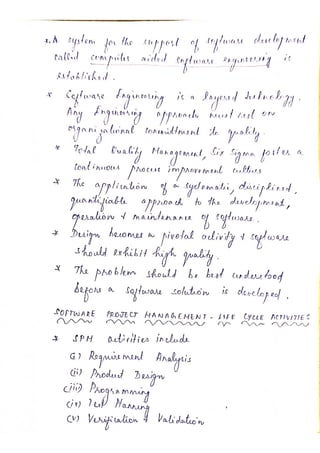 1. A system for the support of software development
called computer aided software engineering is
established.
* Software Engineering is a layered technology.
Any Engineering approach must rest on
organizational commitment to quality.
* Total Quality Management, Six Sigma foster a
continuous process improvement culture
* The application of a systematic, disciplined,
quantifiable approach to the development,
operation & maintenance of software.
* Design becomes a pivotal activity & software
should exhibit high quality.
* The problem should be best understood
before a software solution is developed.
SOFTWARE PROJECT MANAGEMENT - LIFE CYCLE ACTIVITIES
* SPM activities include
(i) Requirement Analysis
(ii) Product Design
(iii) Programming
(iv) Test Planning
(v) Verification & Validation